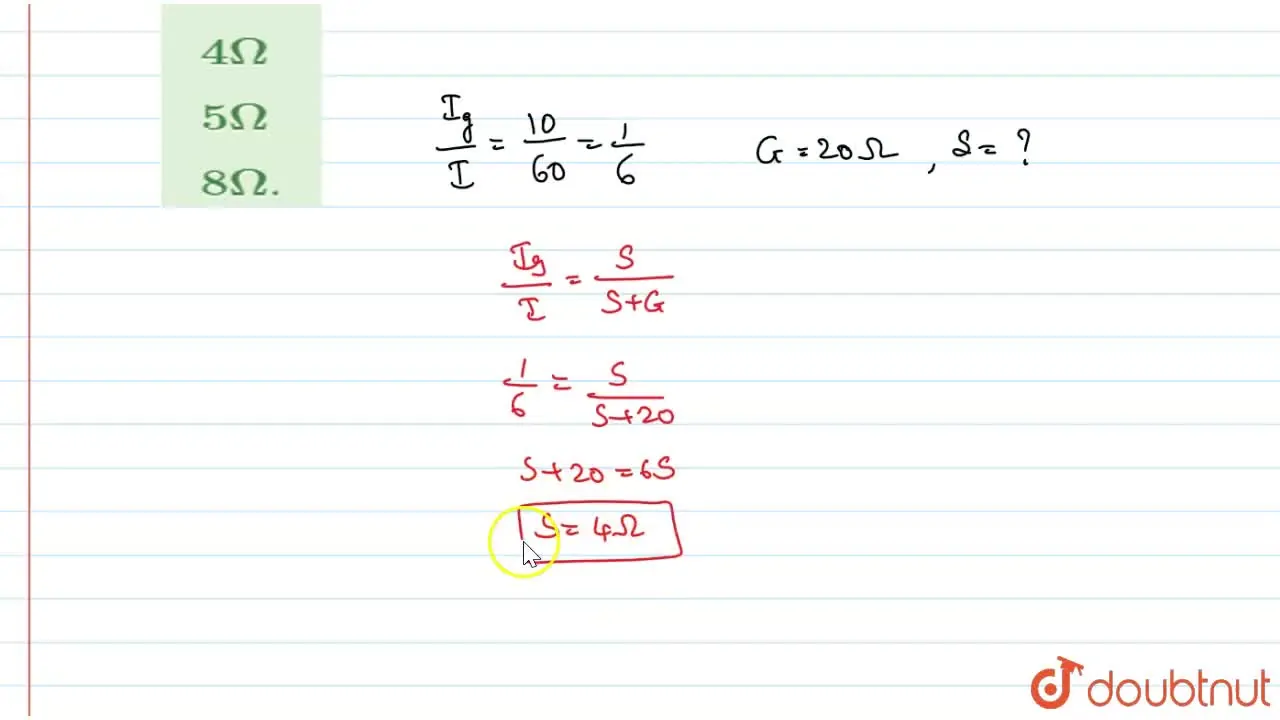 4Ω
5Ω
8Ω.
Ig/I = 10/60 = 1/6 G = 20Ω , S = ?
Ig/I = S/S+G
1/6 = S/S+20
S+20 = 6S
S = 4Ω
doubtnut